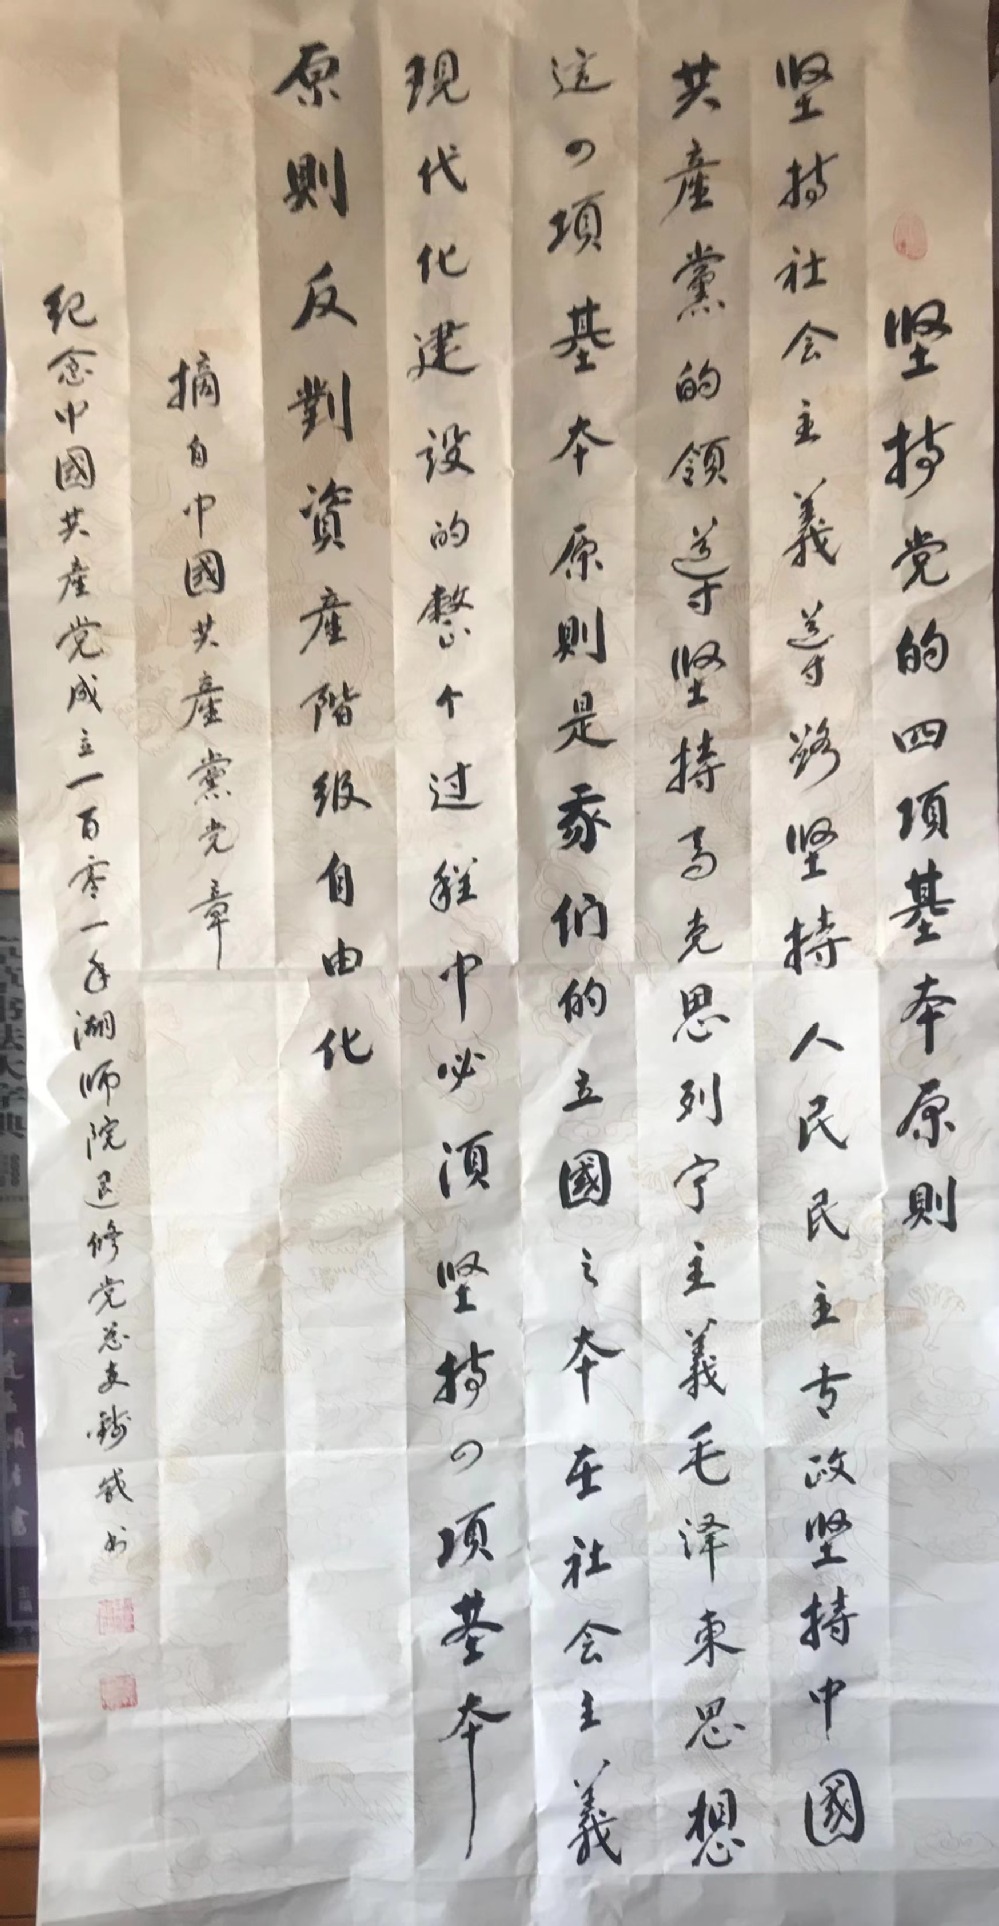 坚持党的四项基本原则
坚持社会主義導路坚持人民民主专政坚持中國
共産黨的領導坚持马克思列宁主義毛泽東思想
这四項基本原則是我们的立國之本在社会主義
現代化建设的整个过程中必須坚持四項基本
原則反對資産階级自由化
摘自中國共産黨党章
纪念中國共産党成立一百零一年湖师院退修党总支
书